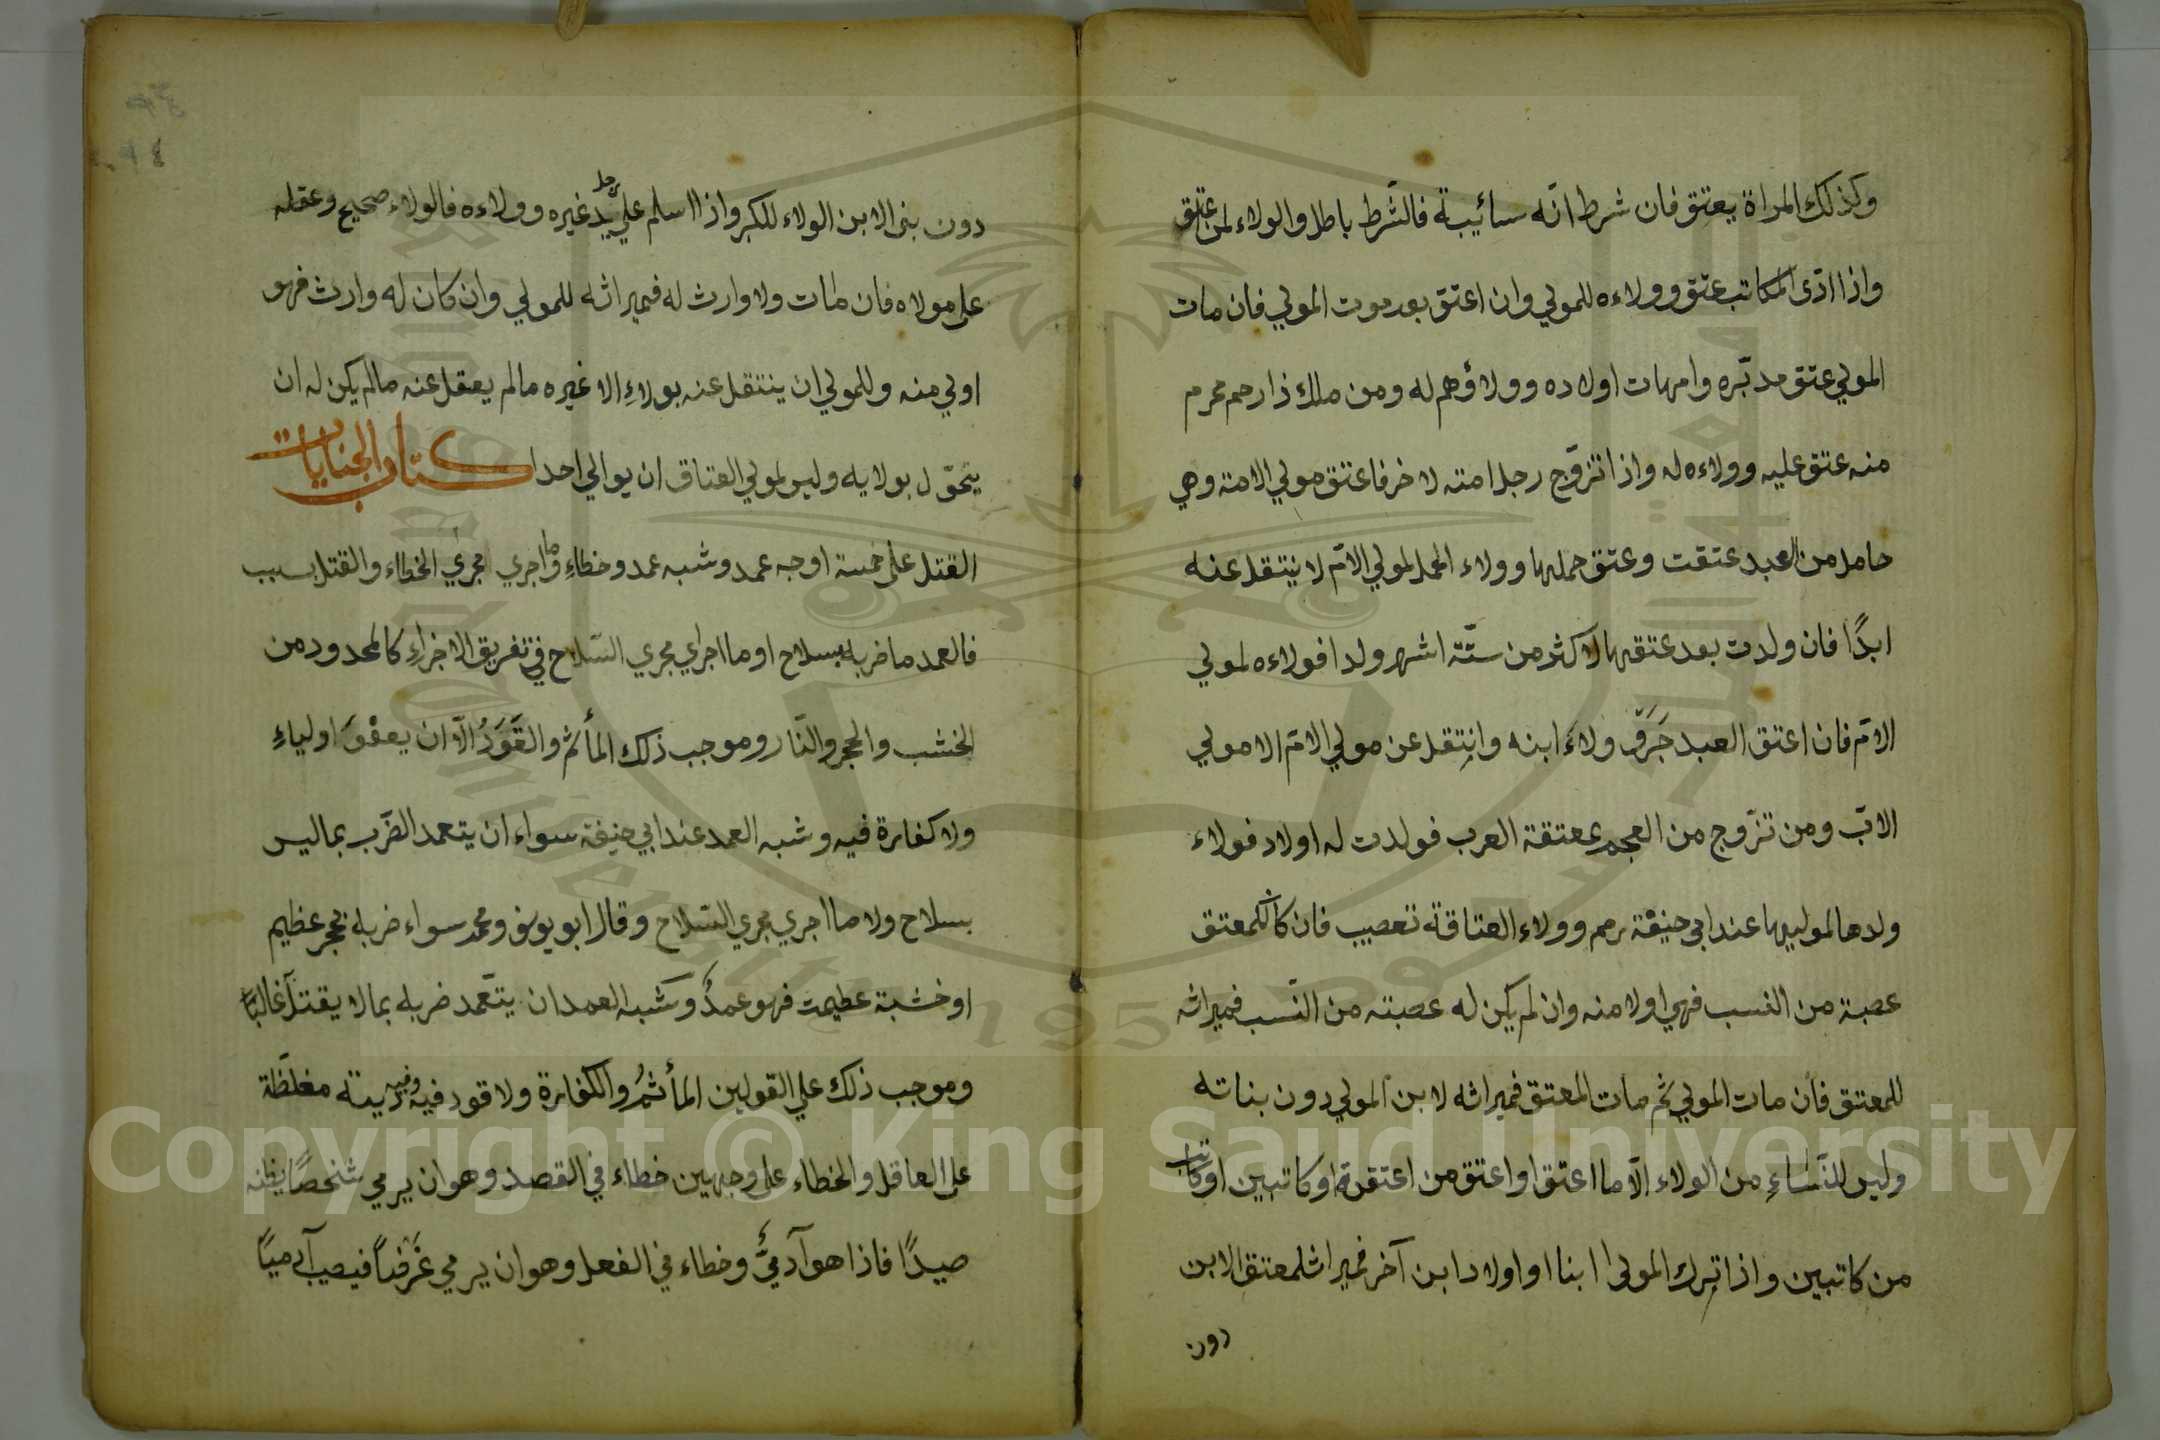 وكذلك المراة يعتق فان شرط انّه سائيبة فالشّرط باطل والولاء لمن عتق
واذا ادّى المكاتب عتق وولاءه للمولي وان اعتق بعد موت المولي فان مات
المولي عتق مدبّره وامهات اولاده وولاؤهم له ومن ملك ذا رحم محرم
منه عتق عليه وولاءه له واذا تزوّج رجل امته لاخر فاعتق مولي الامة وهي
حامل من العبد عتقت وعتق حملها وولاء الحمل لمولي الامّ لا ينتقل عنه
ابدًا فان ولدت بعد عتقها لاكثر من ستّة اشهر ولدا فولاءه لمولي
الامّ فان اعتق العبد جَرَّ ولاءَ ابنه وانتِقل عن مولي الامّ الا مولي
الابّ ومن تزوّج من العجم بمعتقة العرب فولدت له اولاد فولاء
ولدها لموليها عند ابي حنيفة رحمه وولاء العتاقة تعصيب فان كان للمعتق
عصبة من النسب فهي اولا منه وان لم يكن له عصبته من النّسب فميراثه
للمعتق فان مات المولي ثم مات المعتق فميراثه لابن المولي دون بناته
وليس للنّساءِ من الولاء الّا ما اعتق او اعتق من اعتقدة او كاتبين او كاتب
من كاتبين واذا ترك المولى ابنا او اولاد ابن آخر فميراث لمعتق الابن
دون
دون بنى الابن الولاء للكبر واذا اسلم علي يد رجل غيره وولاءه فالولاء صحيح وعقله
على مولاه فان مات ولا وارث له فميراثه للمولي وان كان له وارث فهو
اولي منه وللمولي ان ينتقل عنه بولاءِ الا غيره مالم يعقل عنه مالم يكن له ان
يتحوّل بولايه وليس لمولي العتاق ان يوالي احدا كتاب الجنايات
القتل على خمسة اوجه عمد وشبه عمد وخطاءِ وما اجري مجرَي الخطاء والقتل بسبب
فالعمد ما ضربه بسلاح او ما اجراي مجري السّلاح في تفريق الاجزاءِ كالمحدود من
الخشب والحجر والنّار وموجب ذلك المأثم والقَوَدُ الّا ان يعفْوَ اولياءِ
ولا كفارة فيه وشبه العمد عند ابي حنيفة سواء ان يتعمد الضّرب بماليس
بسلاح ولا ما اجري مجري السّلاح وقال ابو يوسف ومحمد سواء ضربه بحجر عظيم
او خشبة عظيمة فهو عمدٌ وشبه العمد ان يتعّمد ضربه بما لا يقتل غالبًا
وموجب ذلك علي القولين المأثمُ والكفارة ولا قود فيه وفيه دّيته مغلظّة
على العاقل والخطاء على وجهين خطاء في القصد وهو ان يرمي شخصًا يظنه
صيدًا فاذا هو آدميٌّ وخطاء في الفعل وهو ان يرمي غَرَضًا فيصيب آدميًا